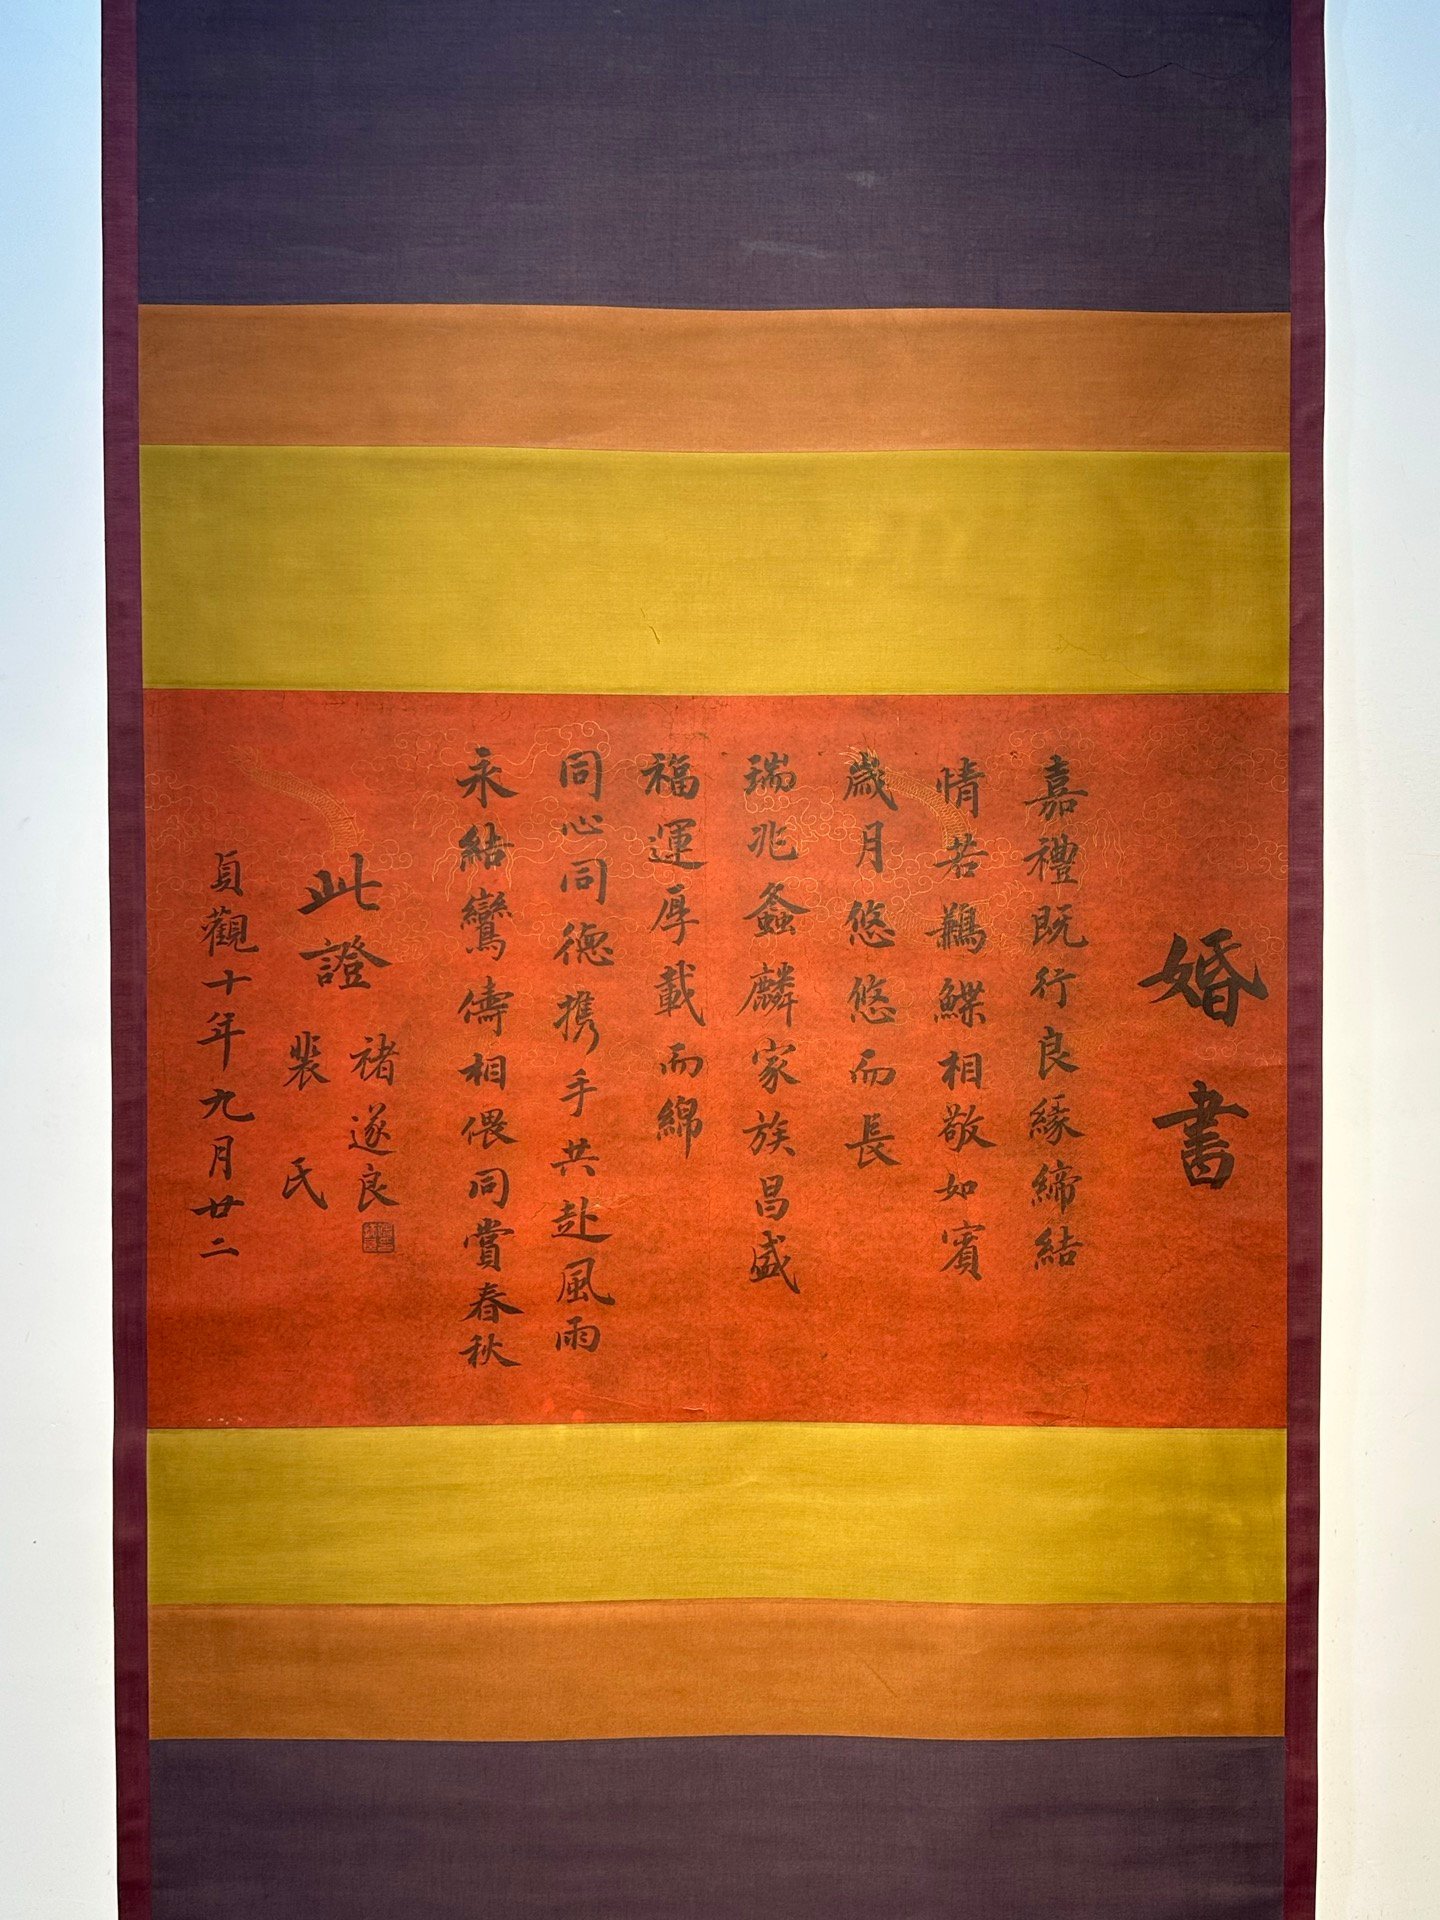 婚書
嘉禮既行良緣締結
情若鶼鰈相敬如賓
歲月悠悠而長
瑞兆螽麟家族昌盛
福運厚載而綿
同心同德携手共赴風雨
永結鸞儔相偎同賞春秋
此證
褚遂良
裴氏
貞觀十年九月廿二